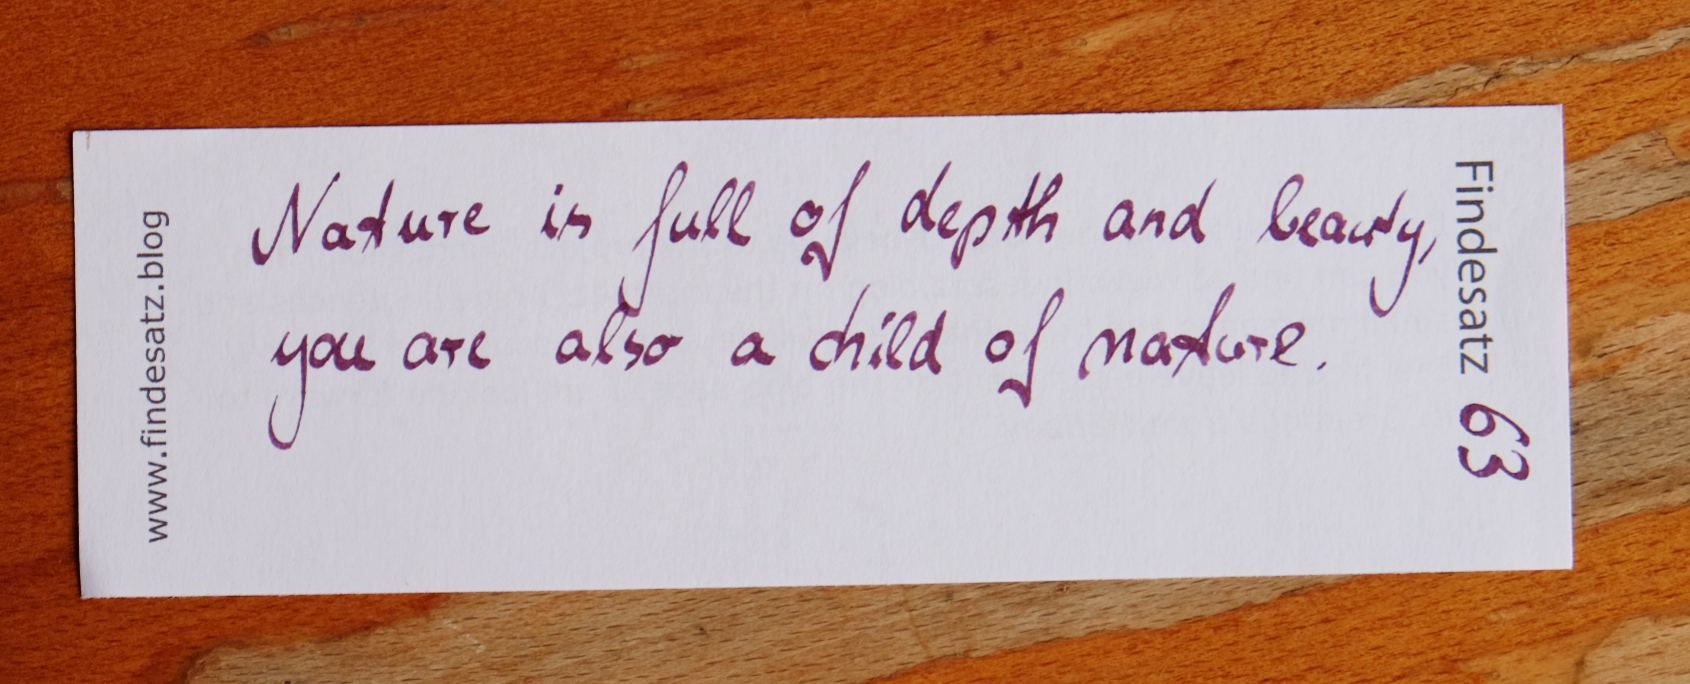 www.findesatz.blog
Nature is full of depth and beauty,
you are also a child of nature.
Findesatz 63